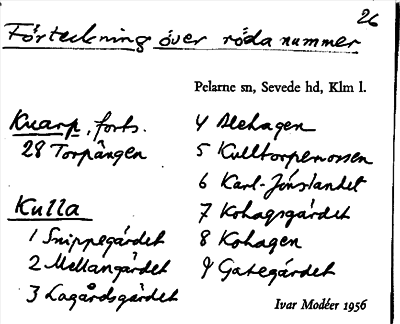 26
Förteckning över röda nummer
Pelarne sn, Sevede hd, Klm l.
Kvarp, forts.
28 Torpängen
Kulla
1 Snippegärdet
2 Mellangärdet
3 Lagårdsgärdet
4 Alehagen
5 Kulltorpemossen
6 Karl-Jönslandet
7 Kohagsgärdet
8 Kohagen
9 Gategärdet
Ivar Modéer 1956